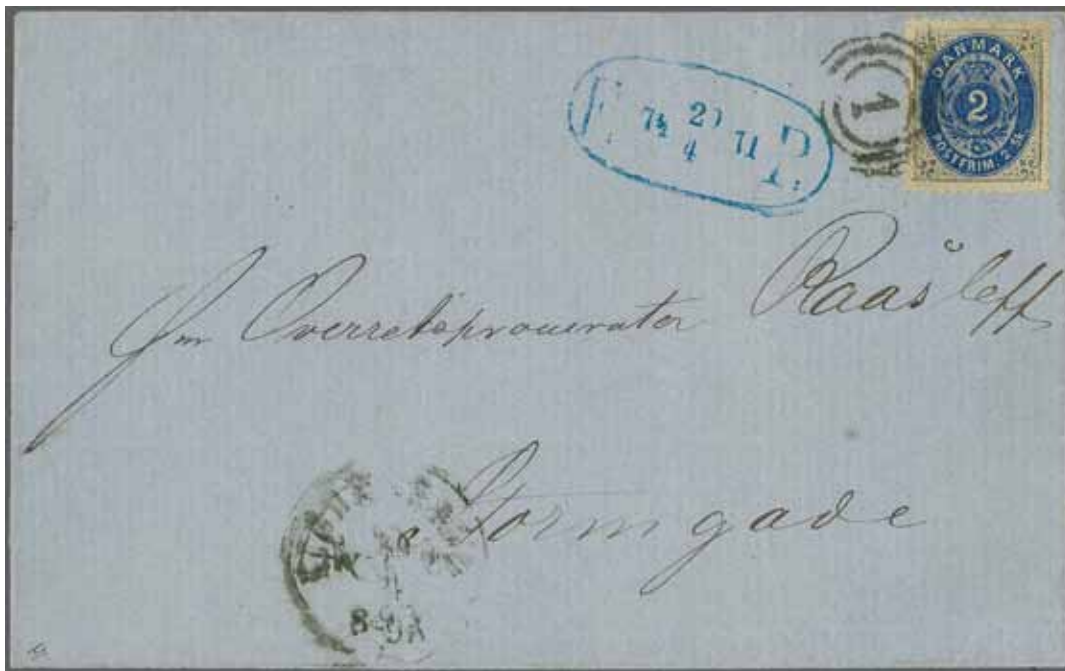 DANMARK
2
POSTFRIM. 2 SK.
1
F: P:
7½ 4 71
Overretsprocurator Raasleff
Stormgade